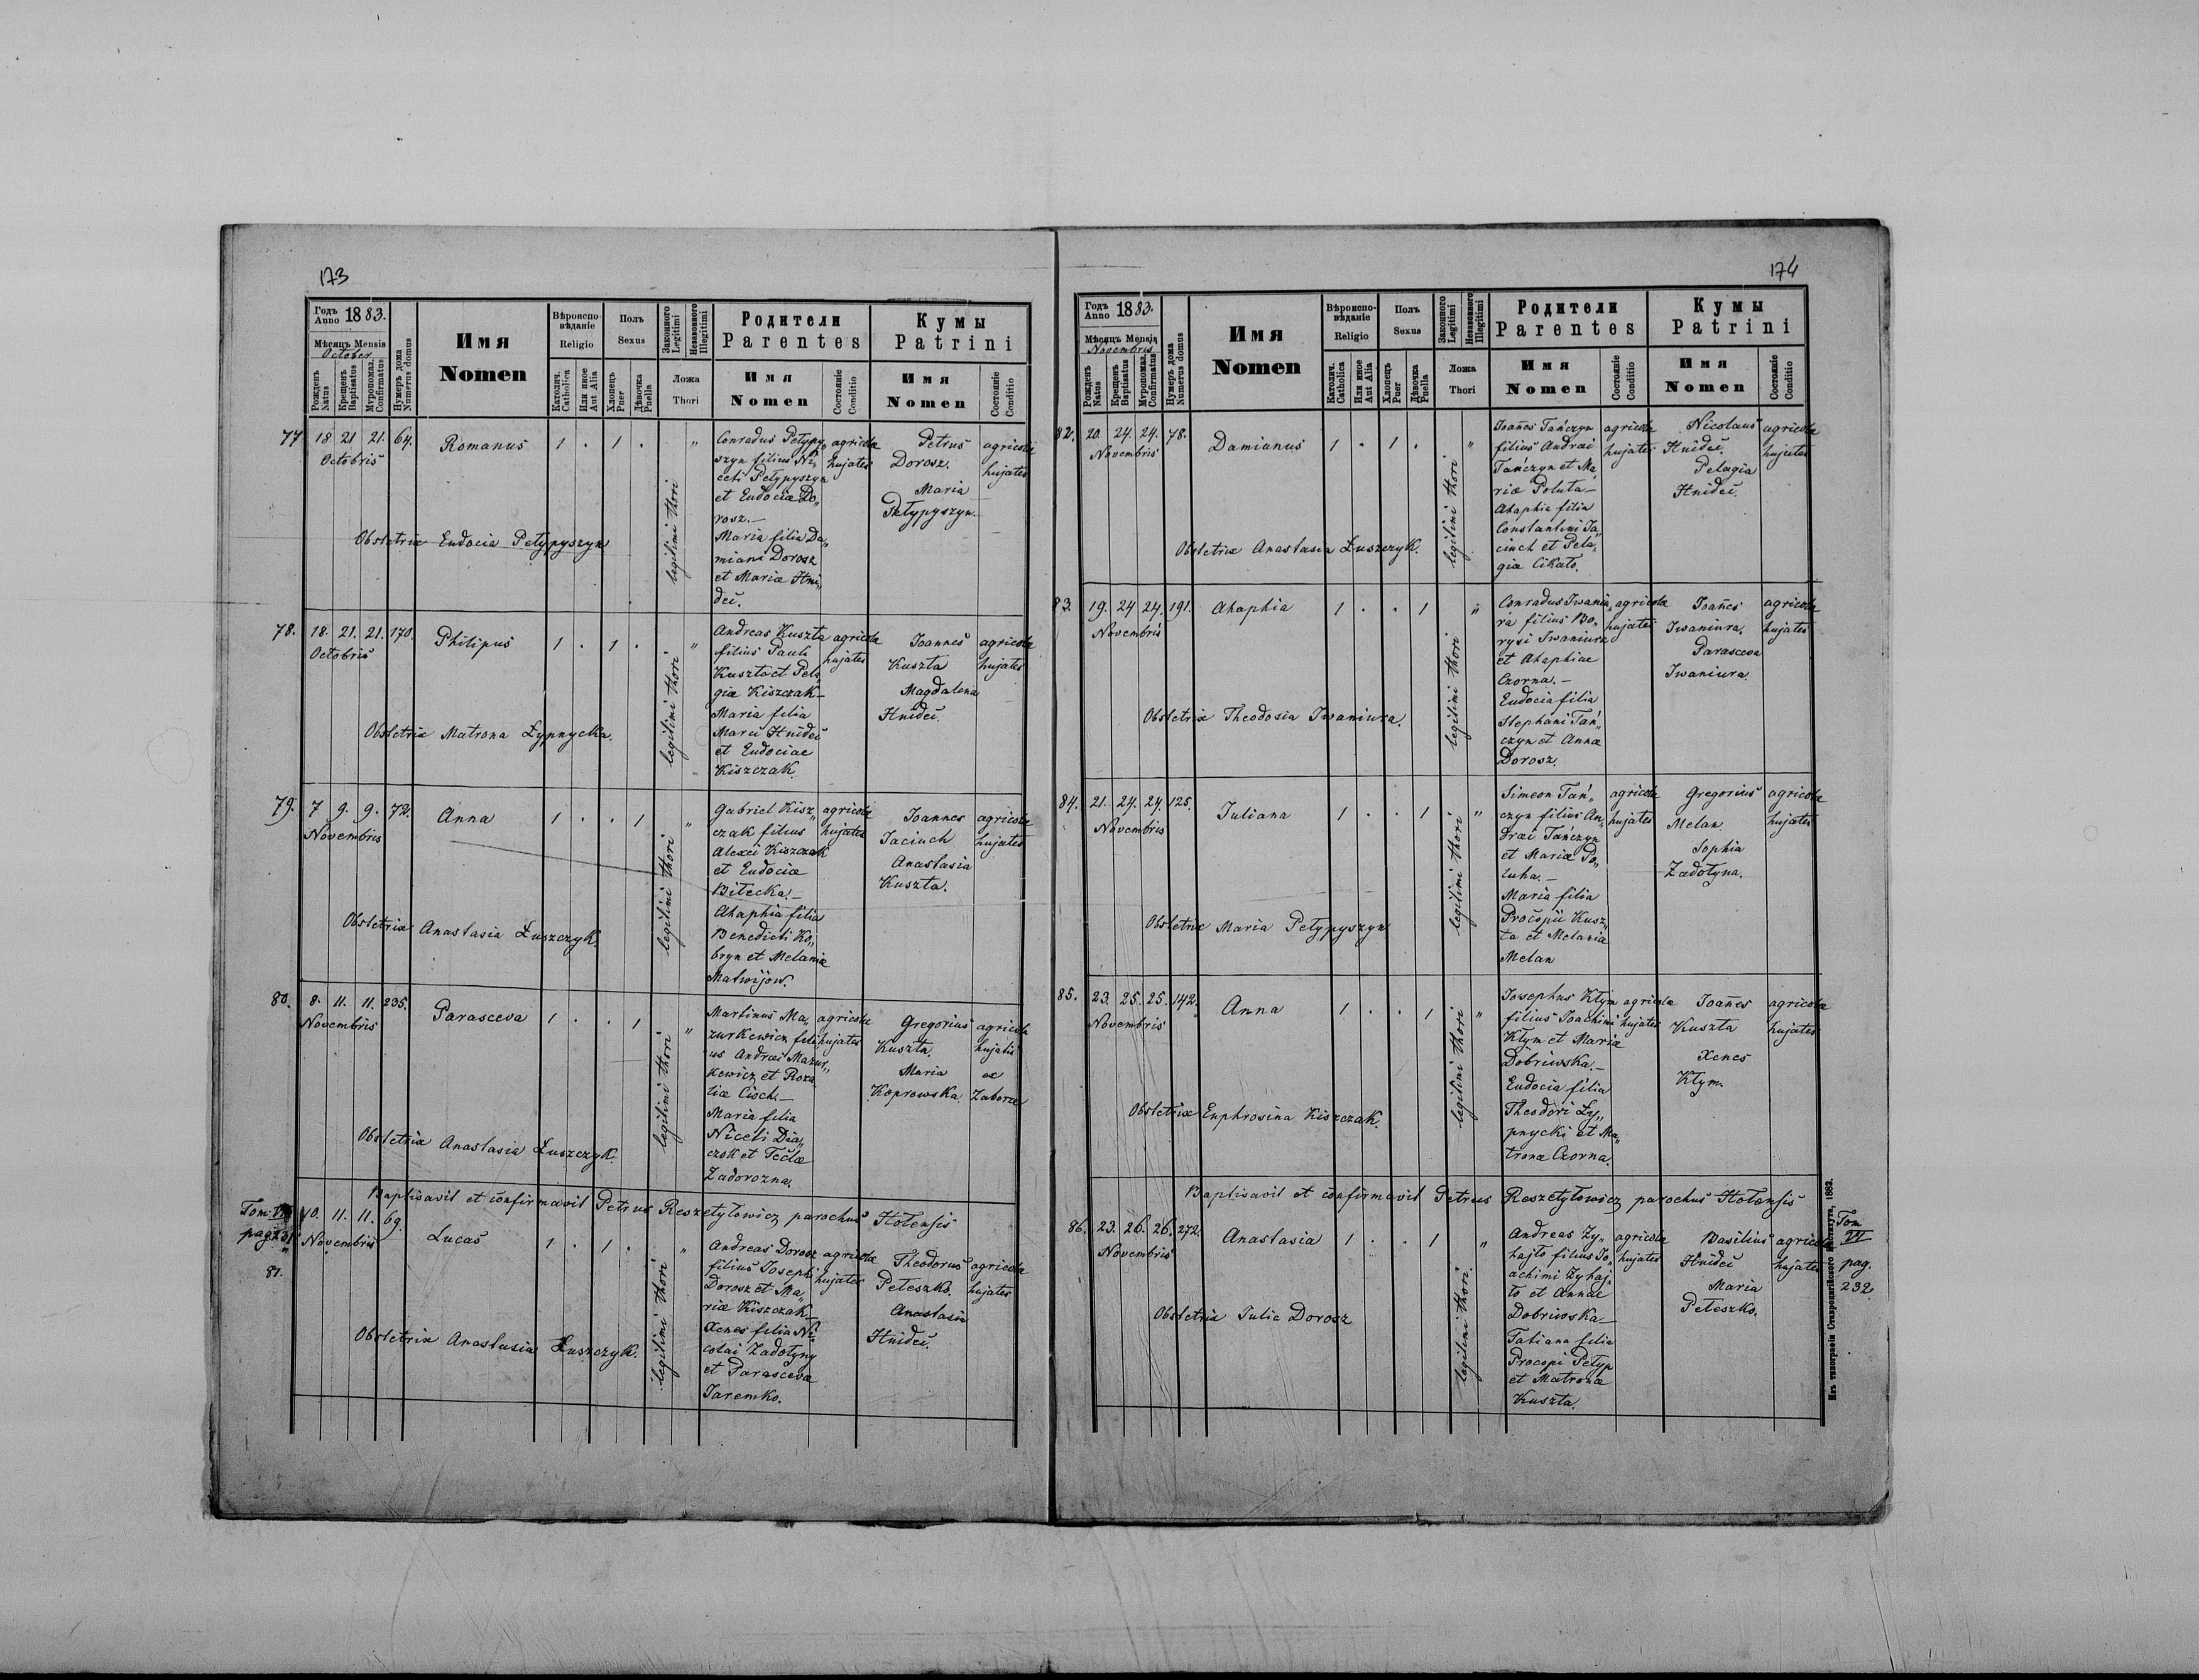 173
Годъ Anno 1883.
Мѣсяцъ Mensis
October
Рожденъ Natus
Крещенъ Baptisatus
Мѵропомаз. Confirmatus
Нумеръ дома Numerus domus
Имя
Nomen
Вѣроиспо-
вѣданіе
Religio
Католич. Catholica
Или иное Aut Alia
Полъ
Sexus
Хлопецъ Puer
Дѣвочка Puella
Законного Legitimi
Незаконного Illegitimi
Ложа
Thori
Родители
Parentes
Имя
Nomen
Состояніе Conditio
Кумы
Patrini
Имя
Nomen
Состояніе Conditio
77 18. 21 21. 64. Romanus 1 . 1 . "
Octobris
legitimi thori
Conradus Petypy„
szyn filius Ni„
ceti Petypyszyn
et Eudociæ Do„
rosz.—
Maria filia Da„
miani Dorosz
et Mariæ Hni„
deć.
agricola
hujates
Petrus
Dorosz.
Maria
Petypyszyn.
agricola
hujates
Obstetrix Eudocia Petypyszyn
78. 18. 21. 21. 170. Philipus 1 . 1 . "
Octobris
legitimi thori
Andreas Kuszta
filius Pauli
Kuszta et Pela„
giæ Kiszczak—
Maria filia
Marci Hnideć
et Eudociae
Kiszczak.
agricola
hujates
Ioannes
Kuszta
Magdalena
Hnideć.
agricola
hujates
Obstetrix Matrona Łypnycka.
79. 7 9. 9. 72. Anna 1 . . 1 "
Novembris
legitimi thori
Gabriel Kisz„
czak filius
Alexei Kiszczak
et Eudociæ
Bitecka.—
Ahaphia filia
Benedicti Ko„
bryn et Melaniæ
Matwijow.
agricola
hujates
Ioannes
Jacinch
Anastasia
Kuszta.
agricola
hujates
Obstetrix Anastasia Łuszczyk.
80. 8. 11. 11. 235. Parasceva 1 . . 1 "
Novembris
legitimi thori
Martinus Ma„
zurkewicz fili„
us Andreæ Mazur„
kewicz et Roza„
liæ Cioch.—
Maria filia
Niceti Dia„
czok et Teclæ
Zadorozna.
agricola
hujates
Gregorius
Kuszta.
Maria
Koprowska.
agricola
hujatis
ex
Zaborze
Obstetrix Anastasia Łuszczyk.
Baptisavit et confirmavit Petrus Reszetyłowicz parochus Hołensis
Tom. VI
pag. 231
81.
10. 11. 11. 69. Lucas 1 . 1 . "
Novembris
legitimi thori
Andreas Dorosz
filius Josephi
Dorosz et Ma„
riæ Kiszczak—
Xenes filia Ni„
colai Zadołyny
et Parascevæ
Jaremko.
agricola
hujates
Theodorus
Peteszko.
Anastasia
Hnideć.
agricola
hujates
Obstetrix Anastasia Łuszczyk.
174
Годъ Anno 1883.
Мѣсяцъ Mensis
Novembris
Рожденъ Natus
Крещенъ Baptisatus
Мѵропомаз. Confirmatus
Нумеръ дома Numerus domus
Имя
Nomen
Вѣроиспо-
вѣданіе
Religio
Католич. Catholica
Или иное Aut Alia
Полъ
Sexus
Хлопецъ Puer
Дѣвочка Puella
Законного Legitimi
Незаконного Illegitimi
Ложа
Thori
Родители
Parentes
Имя
Nomen
Состояніе Conditio
Кумы
Patrini
Имя
Nomen
Состояніе Conditio
82. 20. 24. 24. 78. Damianus 1 . 1 . "
Novembris
legitimi thori
Joañes Tańczyn
filius Andreæ
Tańczyn et Ma„
riæ Połuta—
Ahaphia filia
Constantini Ja„
cinch et Pela„
giæ Cikało.
agricola
hujates
Nicolaus
Hnideć.
Pelagia
Hnideć.
agricola
hujates
Obstetrix Anastasia Łuszczyk.
83. 19. 24 24. 191. Ahaphia 1 . . 1 "
Novembris
legitimi thori
Conradus Iwaniu„
ra filius Bo„
rysi Iwaniura
et Ahaphiae
Czorna.—
Eudocia filia
Stephani Tań„
czyn et Annæ
Dorosz.
agricola
hujates
Ioañes
Iwaniura.
Parasceva
Iwaniura.
agricola
hujates
Obstetrix Theodosia Iwaniura.
84. 21. 24. 24. 125. Iuliana 1 . . 1 "
Novembris
legitimi thori
Simeon Tań„
czyn filius An„
dreæ Tańczyn
et Mariæ Po„
luha.—
Maria filia
Procopii Kusz„
ta et Melaniæ
Melan
agricola
hujates
Gregorius
Melan.
Sophia
Zadołyna.
agricola
hujates
Obstetrix Maria Petypyszyn
85. 23. 25. 25. 142. Anna 1 . . 1 "
Novembris
legitimi thori
Iosephus Kłym
filius Ioachimi
Kłym et Mariæ
Dobriwska.—
Eudocia filia
Theodori Ły„
pnycki et Ma„
tronæ Czorna.
agricola
hujates
Ioañes
Kuszta
Xenes
Kłym.
agricola
hujates
Obstetrix Euphrosina Kiszczak.
Baptisavit et confirmavit Petrus Reszetyłowicz parochus Hołensis
86. 23. 26. 26. 272. Anastasia 1 . . 1 "
Novembris
legitimi thori.
Andreas Zy„
hajło filius Io„
achimi Zyhaj„
ło et Annae
Dobriwska—
Tatiana filia
Procopi Petyp
et Matronæ
Kuszta.
agricola
hujates
Basilius
Hnideć
Maria
Peteszko.
agricola
hujates
Obstetrix Iulia Dorosz
Tom
VI
pag.
232
Изъ типографіи Ставропигійского Института, 1882.